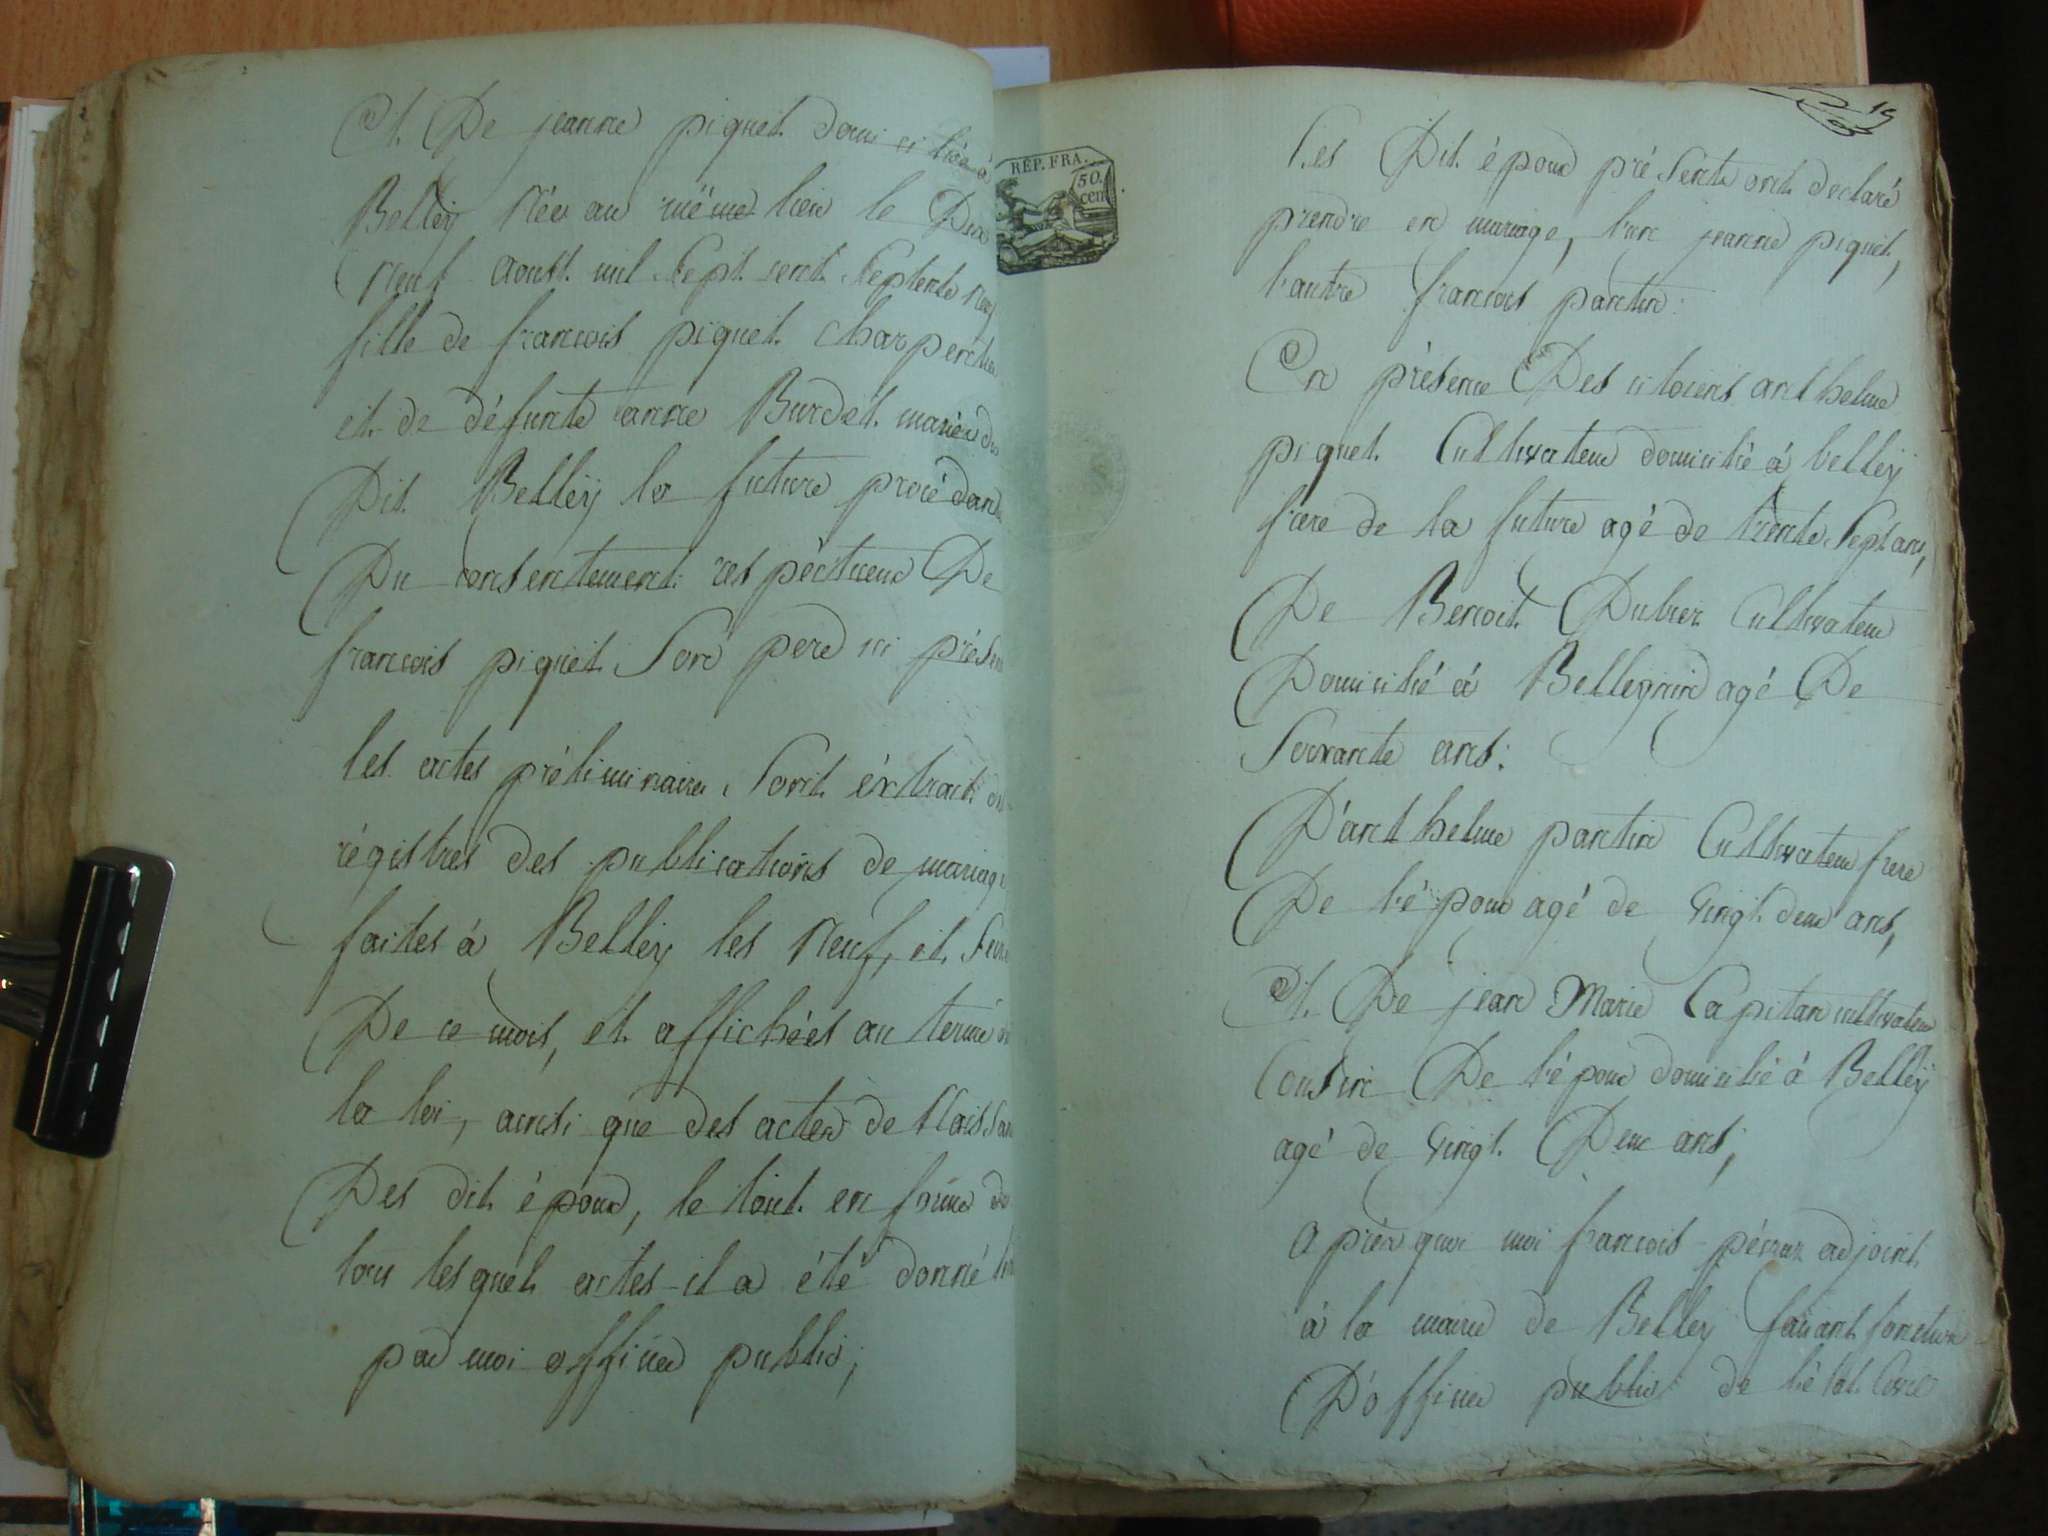 Et. De jeanne piquet domiciliée à
Belley Née au même lieu le Dix
Neuf aoust mil Sept cent Septente Neuf
fille de francois piquet Charpentier
et de défunte anne Burdet mariés du
Dit Belley la future procédant
Du consentement respectueux De
francois piquet Son pere ici présent
les actes préliminaires Sont éxtrait des
régistres des publications de mariage
faites à Belley les Neuf, et Seize
De ce mois, et affichées au terme de
la loi, ainsi que des actes de Naissan
Des dit époux, le tout en forme de
tous lesquels actes il a été donné
par moi officier public;
RÉP. FRA.
50.
cent
15
Les Dit époux présente ont declaré
prendre en mariage, l'un jeanne piquet,
l'autre francois pantin.
En présence Des citoiens anthelme
piquet Cultivateur domicilié à belley
frere de la future agé de trente Sept ans,
De Benoit Dubiez Cultivateur
Domicilié à Bellegnin agé De
Soixante ans.
D'anthelme pantin Cultivateur frere
De l'époux agé de Vingt deux ans,
Et. De jean Marie Capitan cultivateur
Cousin De l'époux domicilié à Belley
agé de Vingt Deux ans;
après quoi moi francois adjoint
à la mairie de Belley faisant fonction
D'officier public de l'état Civil